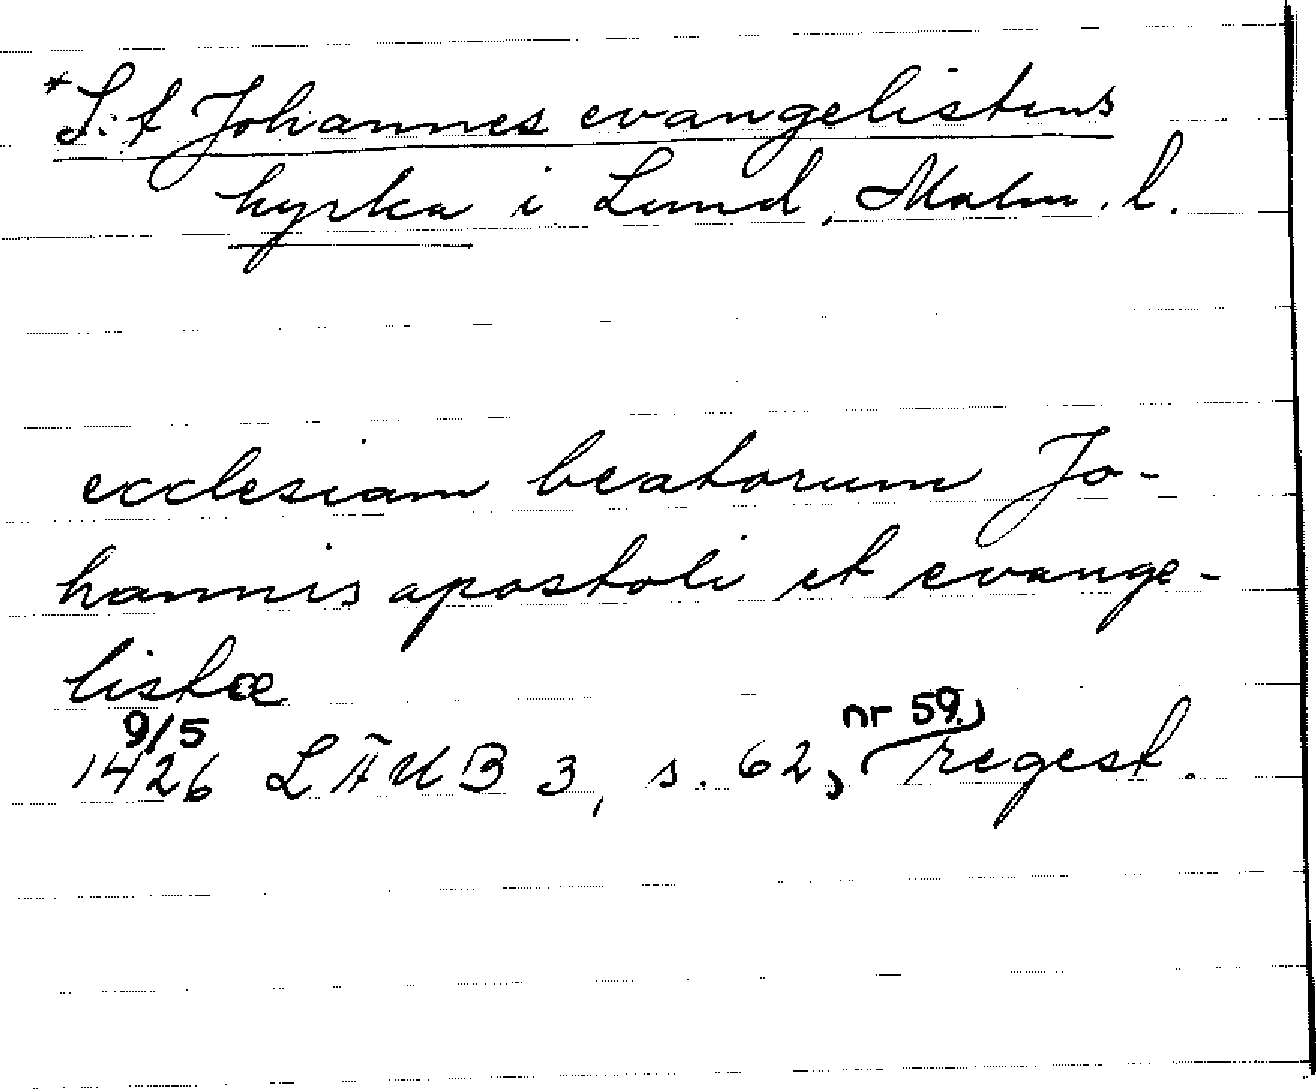 *S:t Johannes evangelistens
kyrka i Lund, Malm. l.
ecclesiam beatorum Jo-
hannis apostoli et evange-
listæ
9/5 nr 59,
1426 LÄUB 3, s. 62, regest.